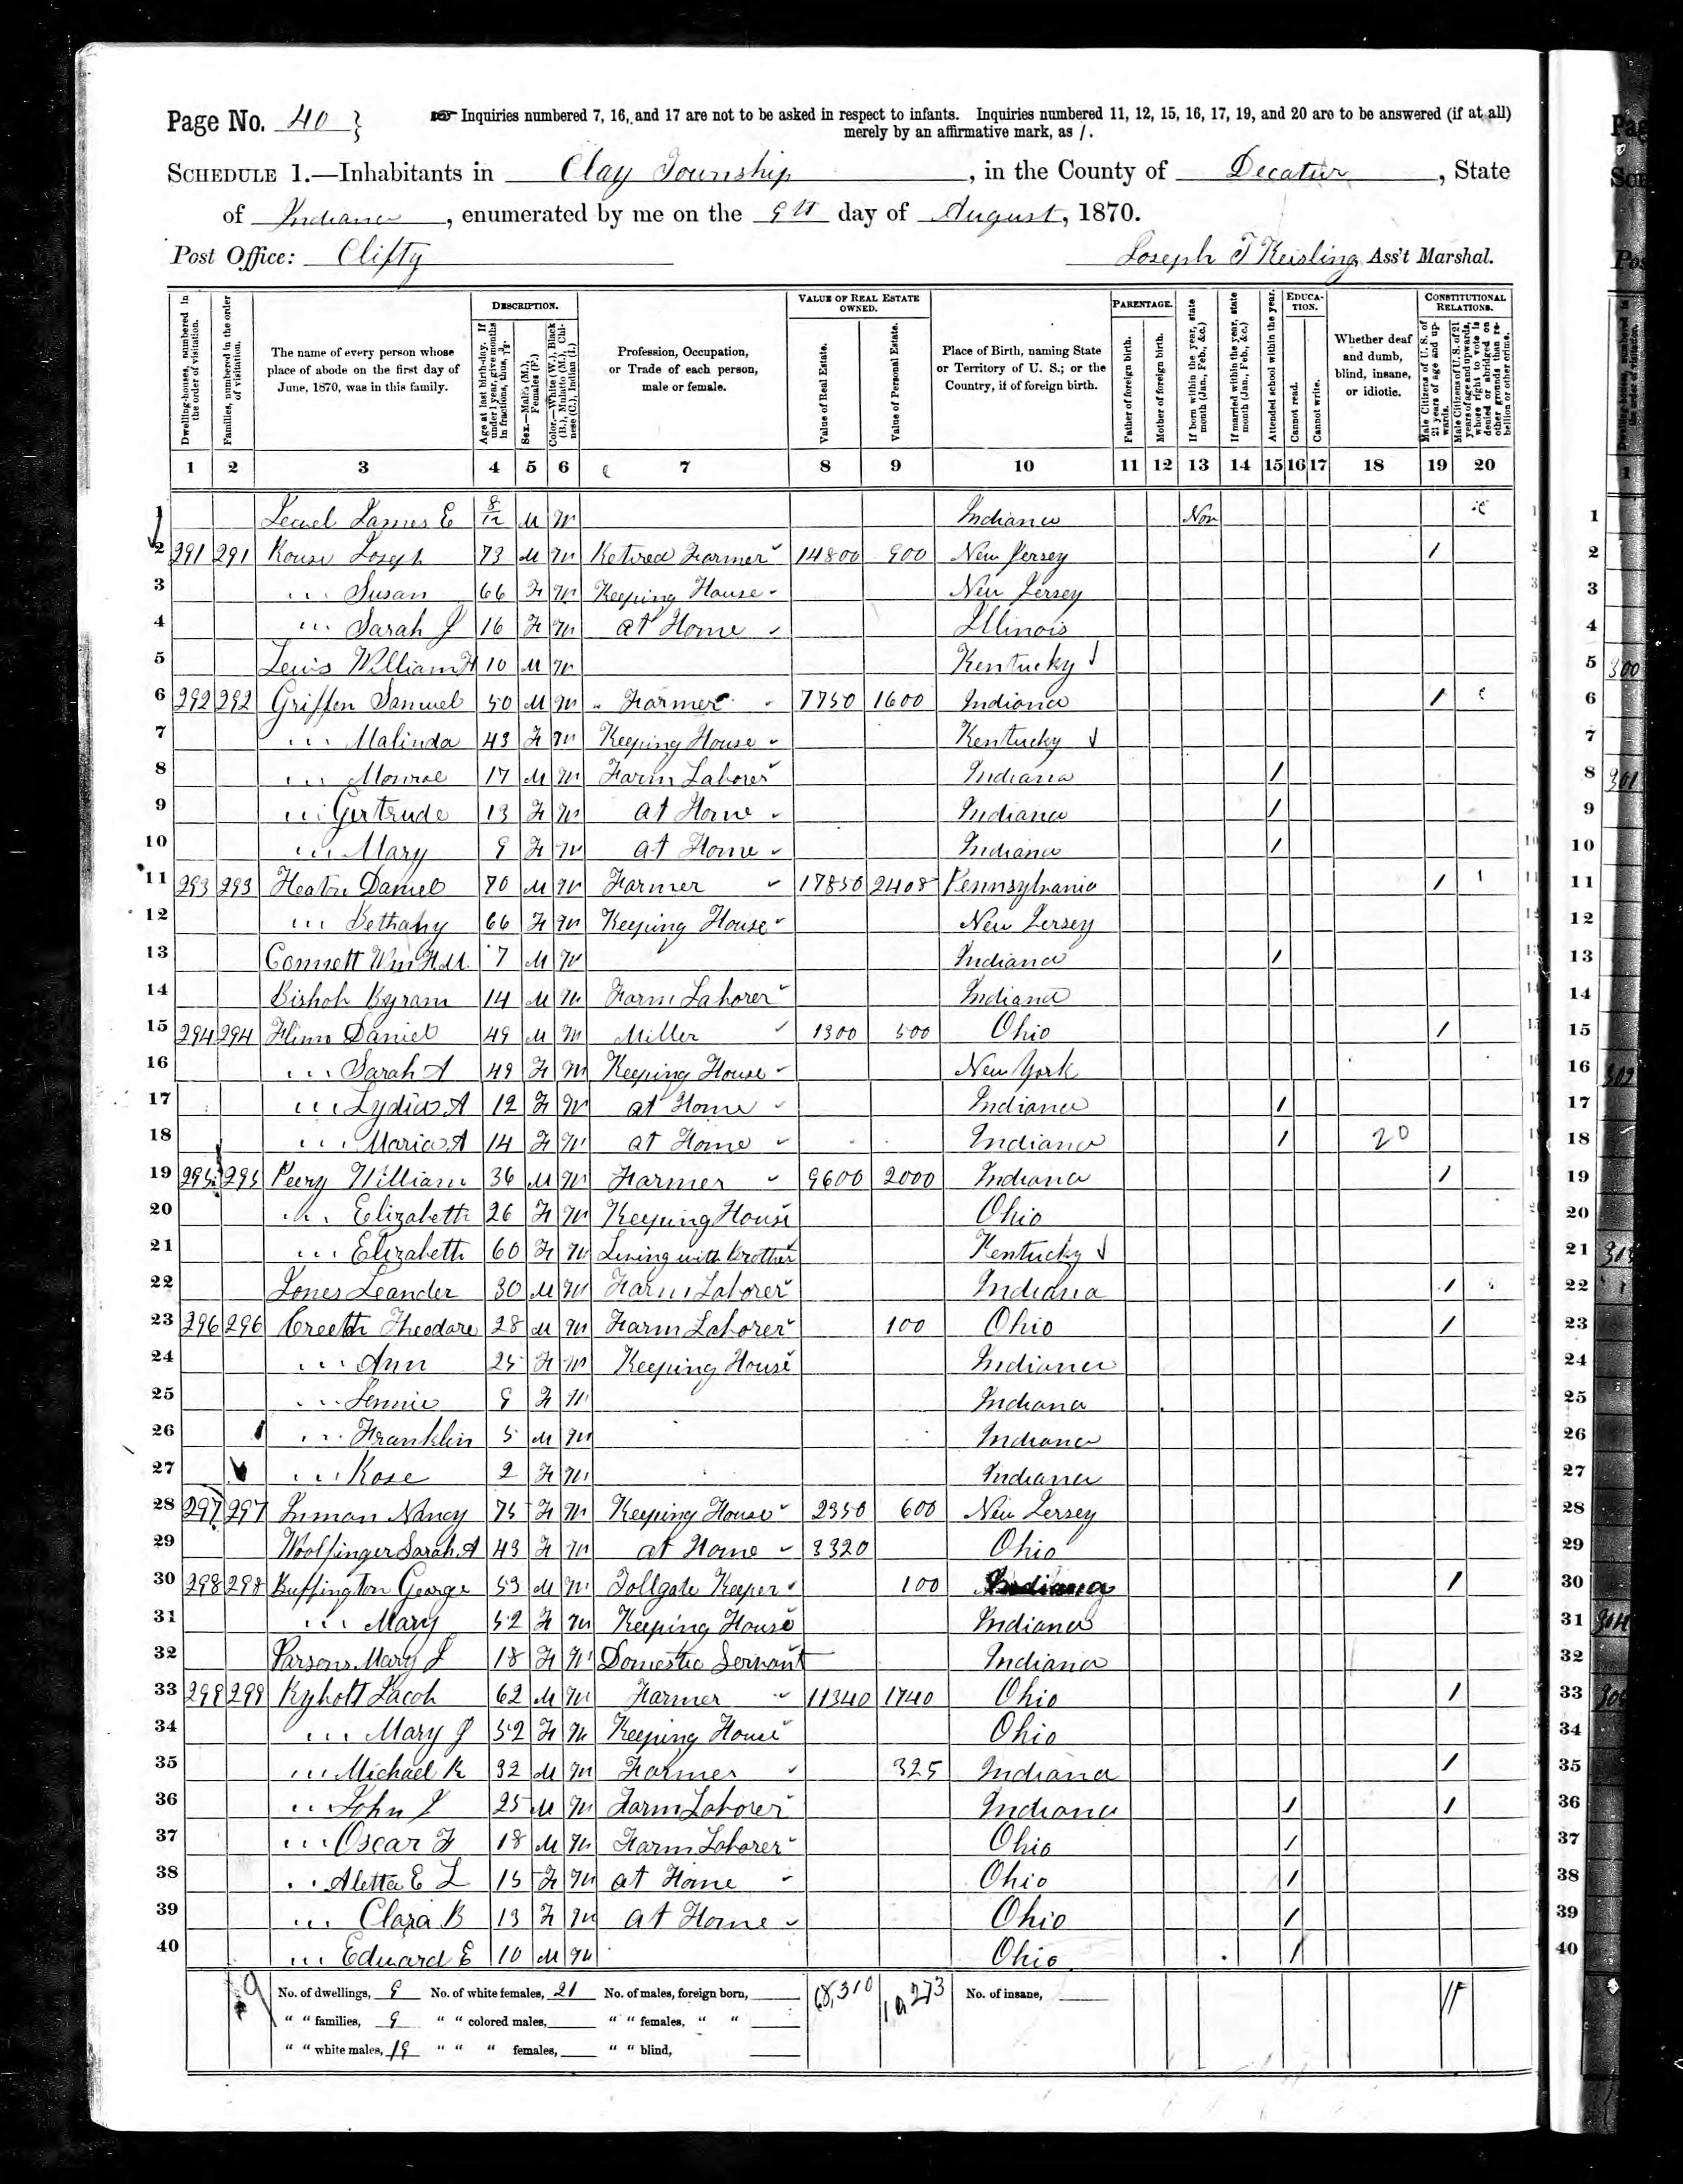 Page No. 40 }
Inquiries numbered 7, 16, and 17 are not to be asked in respect to infants. Inquiries numbered 11, 12, 15, 16, 17, 19, and 20 are to be answered (if at all)
merely by an affirmative mark, as /.
SCHEDULE 1.—Inhabitants in Clay Township, in the County of Decatur, State
of Indiana, enumerated by me on the 9th day of August, 1870.
Post Office: Clifty Joseph T Keisling, Ass't Marshal.
Dwelling-houses, numbered in the order of visitation.
Families, numbered in the order of visitation.
The name of every person whose place of abode on the first day of June, 1870, was in this family.
DESCRIPTION.
Age at last birth-day. If under 1 year, give months in fractions, thus, 3/12.
Sex.—Males (M.), Females (F.)
Color.—White (W.), Black (B.), Mulatto (M.), Chinese (C.), Indian (I.)
Profession, Occupation, or Trade of each person, male or female.
VALUE OF REAL ESTATE OWNED.
Value of Real Estate.
Value of Personal Estate.
Place of Birth, naming State or Territory of U. S.; or the Country, if of foreign birth.
PARENTAGE.
Father of foreign birth.
Mother of foreign birth.
If born within the year, state month (Jan., Feb., &c.)
If married within the year, state month (Jan., Feb., &c.)
Attended school within the year.
EDUCATION.
Cannot read.
Cannot write.
Whether deaf and dumb, blind, insane, or idiotic.
CONSTITUTIONAL RELATIONS.
Male Citizens of U. S. of 21 years of age and upwards.
Male Citizens of U. S. of 21 years of age and upwards, whose right to vote is denied or abridged on other grounds than rebellion or other crime.
1 2 3 4 5 6 7 8 9 10 11 12 13 14 15 16 17 18 19 20
James E 8/12 M W Indiana Nov
2 291 291 Rouse Joseph 73 M W Retired Farmer 14800 900 New Jersey /
3 ... Susan 66 F W Keeping House New Jersey
4 ... Sarah J 16 F W at Home Illinois
5 Lewis William H 10 M W Kentucky
6 292 292 Griffen Samuel 50 M W Farmer 7750 1600 Indiana /
7 ... Malinda 43 F W Keeping House Kentucky
8 ... Monroe 17 M W Farm Laborer Indiana /
9 ... Gertrude 13 F W at Home Indiana /
10 ... Mary 9 F W at Home Indiana /
11 293 293 Heaton Daniel 70 M W Farmer 17850 2408 Pennsylvania /
12 ... Bethany 66 F W Keeping House New Jersey
13 Connett Wm H.M. 7 M W Indiana /
14 Bishop Byram 14 M W Farm Laborer Indiana
15 294 294 Daniel 49 M W Miller 1300 500 Ohio /
16 ... Sarah A 49 F W Keeping House New York
17 ... Lydia A 12 F W at Home Indiana /
18 ... Maria A 14 F W at Home Indiana / 20
19 295 295 Peery William 36 M W Farmer 9600 2000 Indiana /
20 ... Elizabeth 26 F W Keeping House Ohio
21 ... Elizabeth 60 F W Living with Brother Kentucky
22 Jones Leander 30 M W Farm Laborer Indiana /
23 296 296 Creeth Theodore 28 M W Farm Laborer 100 Ohio /
24 ... Ann 25 F W Keeping House Indiana
25 ... Jennie 9 F W Indiana
26 ... Franklin 5 M W Indiana
27 ... Rose 2 F W Indiana
28 297 297 Inman Nancy 75 F W Keeping House 2350 600 New Jersey
29 Woolfinger Sarah A 43 F W at Home 3320 Ohio
30 298 298 Buffington George 53 M W Tollgate Keeper 100 Indiana /
31 ... Mary 52 F W Keeping House Indiana
32 Parsons Mary J 18 F W Domestic Servant Indiana
33 299 299 Ryholt Jacob 62 M W Farmer 11340 1740 Ohio /
34 ... Mary J 52 F W Keeping House Ohio
35 ... Michael R 32 M W Farmer 325 Indiana /
36 ... John J 25 M W Farm Laborer Indiana / /
37 ... Oscar F 18 M W Farm Laborer Ohio /
38 ... Aletta E L 15 F W at Home Ohio /
39 ... Clara B 13 F W at Home Ohio /
40 ... Edward E 10 M W Ohio /
No. of dwellings, 9 No. of white females, 21 No. of males, foreign born, 68,310 10,273 No. of insane, 11
" " families, 9 " " colored males, " " females, " "
" " white males, 19 " " " females, " " blind,